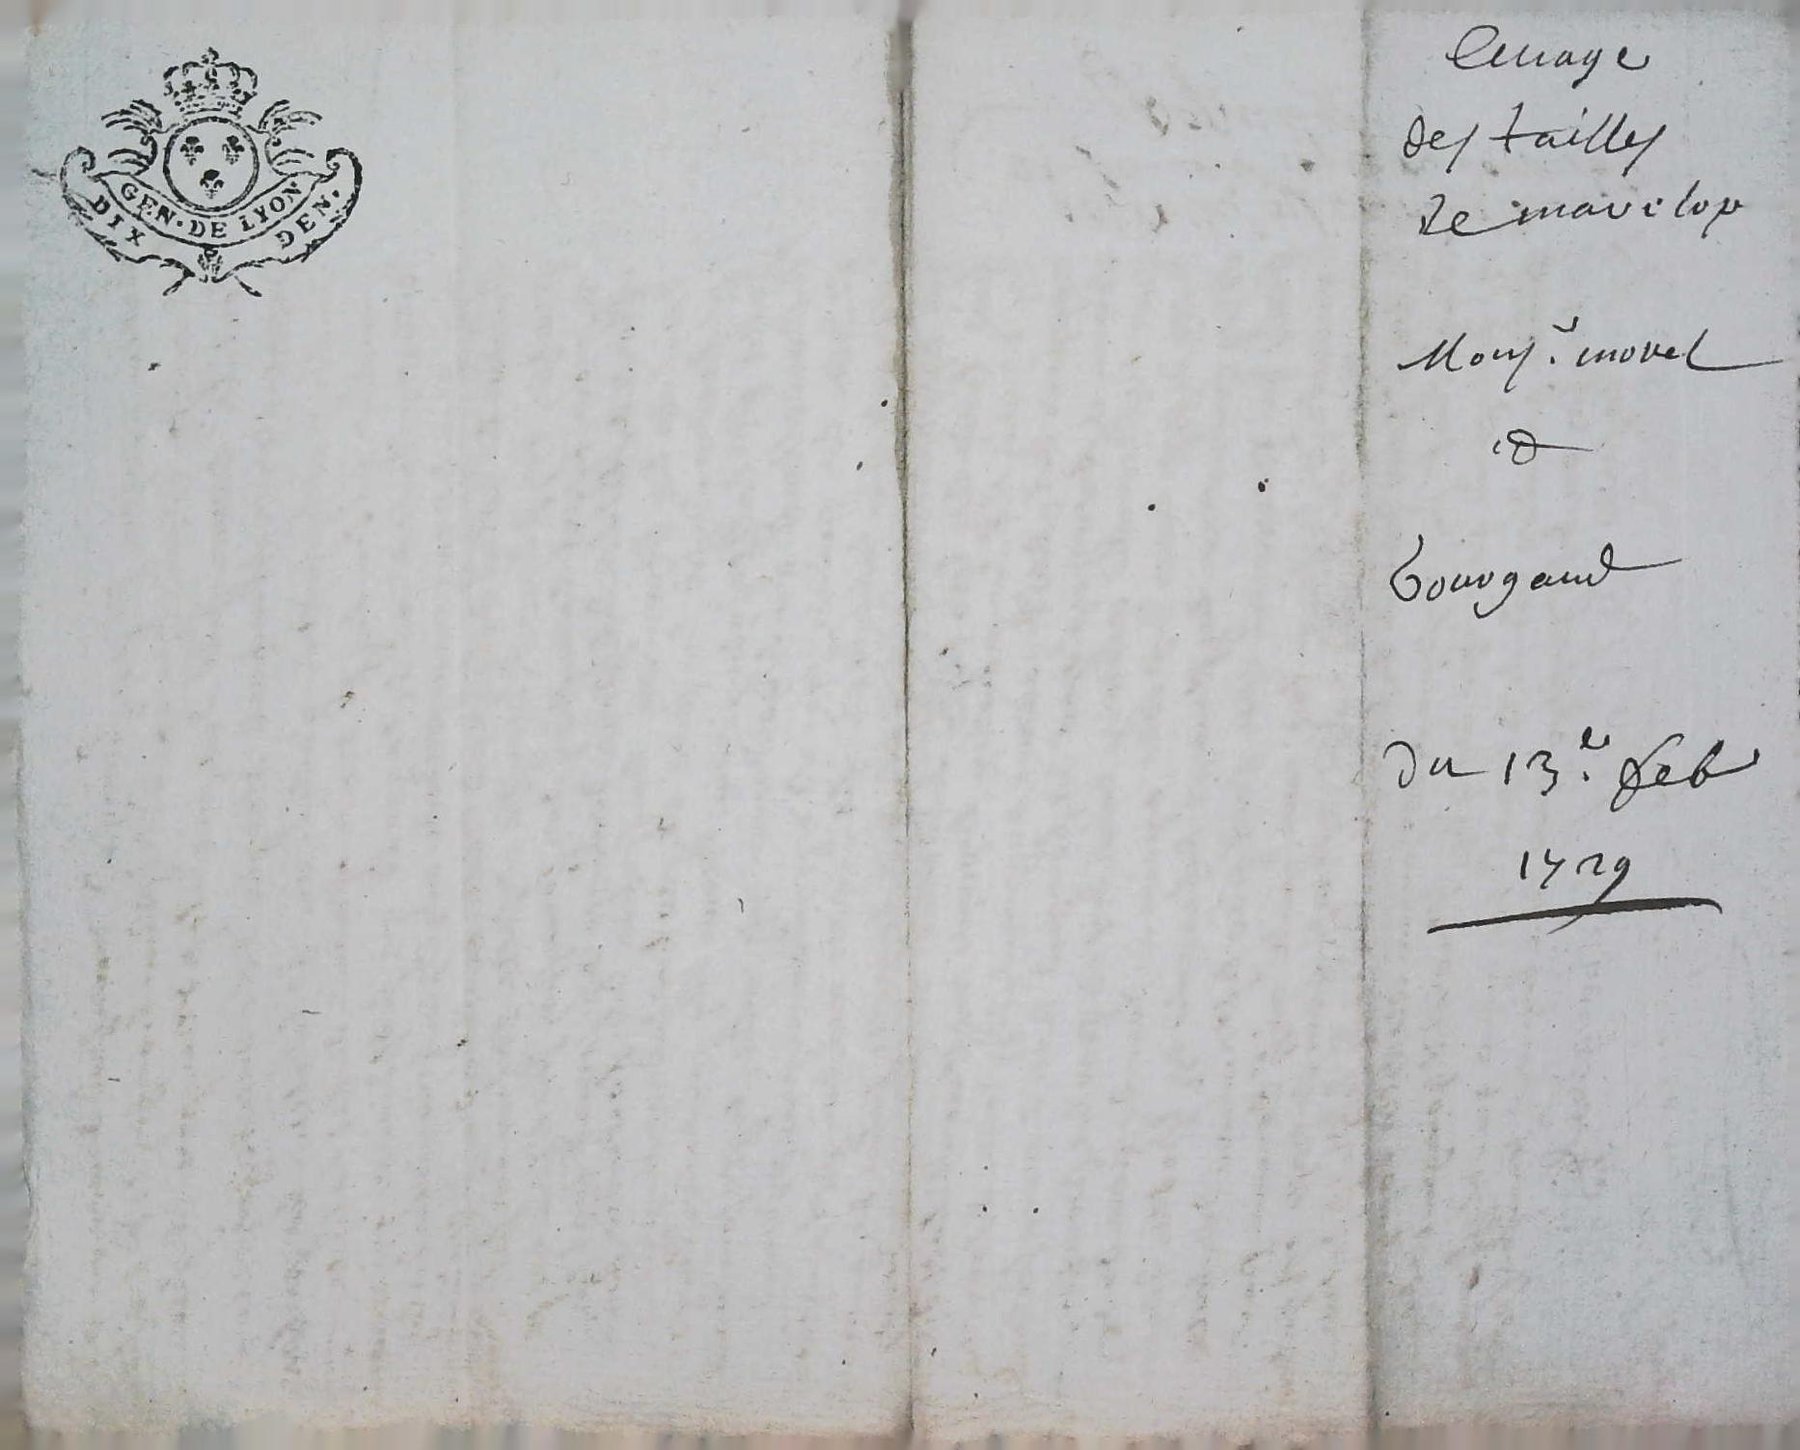 GEN. DE LYON
DIX DEN.
Leuage
des tailles
de marcilop
Mons.r morel
&
bourgaud
du 13.e feb
1729